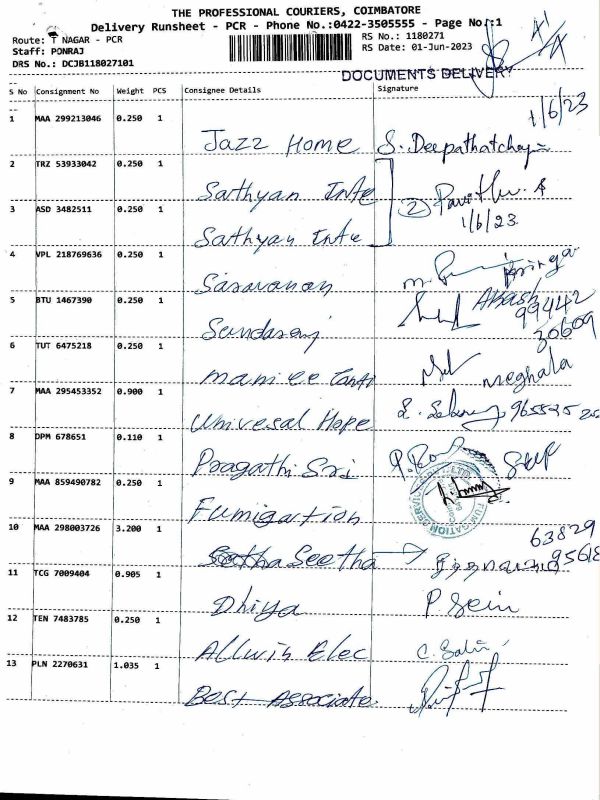 THE PROFESSIONAL COURIERS, COIMBATORE
Delivery Runsheet - PCR - Phone No.:0422-3505555 - Page No.:1
Route: T NAGAR - PCR RS No.: 1180271
Staff: PONRAJ RS Date: 01-Jun-2023
DRS No.: DCJB118027101
DOCUMENTS DELIVERY
S No Consignment No Weight PCS Consignee Details Signature
1/6/23
1 MAA 299213046 0.250 1
Jazz Home S.
2 TRZ 53933042 0.250 1
Sathyan Inte
2
3 ASD 3482511 0.250 1 1/6/23
Sathyan Inte
4 VPL 218769636 0.250 1
Saravanan
Akash
5 BTU 1467390 0.250 1 99442
30609
Sundararaj
6 TUT 6475218 0.250 1
meghala
7 MAA 295453352 0.900 1
Univesal Hope
8 DPM 678651 0.110 1
Pragathi Sri
9 MAA 859490782 0.250 1
Fumigartion
10 MAA 298003726 3.200 1 63829
Seetha 95618
11 TCG 7009404 0.905 1
Dhiya
12 TEN 7483785 0.250 1
Allwin Elec
13 PLN 2270631 1.035 1
Best Associate